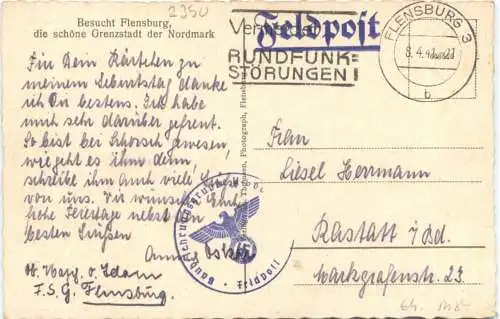 2950
Besucht Flensburg,
die schöne Grenzstadt der Nordmark
Feldpost
RUNDFUNK-
STÖRUNGEN!
FLENSBURG 3
8.4.
b
Für Dein Kärtchen zu
meinem Geburtstag danke
ich Dir bestens. Ich habe
mich sehr darüber gefreut.
So bist bei Schosch gewesen,
wie geht es ihm denn,
schreibe ihm auch viele
von uns. Wir wünschen
frohe Feiertage nebst
besten Grüßen
Anna
F.S.G. Flensburg.
Feldpost
Frau
Liesel Herrmann
Rastatt i/Bd.
Markgrafenstr. 23